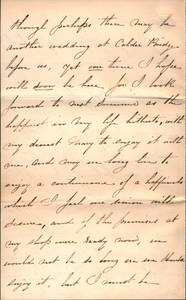 though perhaps there may be
another wedding at Calder Bridge
before us, yet our time I hope
will soon be here, for I look
forward to next summer as the
happiest in my life hitherto, with
my dearest Mary to enjoy it with
me, and may we long live to
enjoy a continuance of a happiness
which I feel our union will
deserve, and if the premises at
my shop were ready now, we
would not be so long ere we should
enjoy it, but I must be